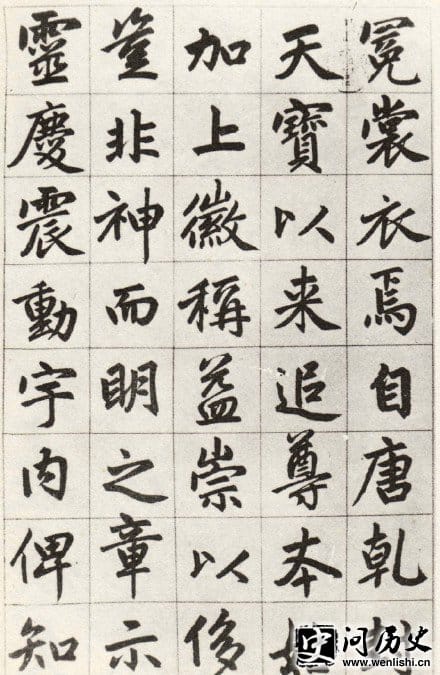 冕裳衣焉自唐乾封
天寶以来追尊本
加上徽稱益崇以侈
豈非神而明之章示
靈慶震動宇内俾知
问历史
www.wenlishi.cn